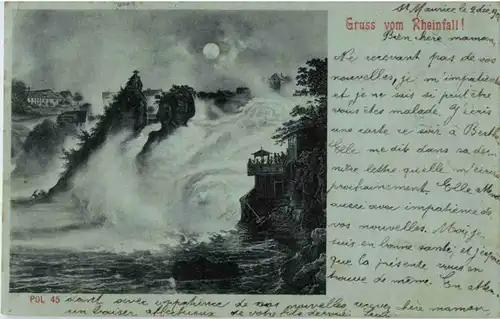 St Maurice le 2 déc
Gruss vom Rheinfall!
Bien chère maman
Ne recevant pas de vos
nouvelles, je m'impatiente
et je ne sais si peut être
vous êtes malade. J'écris
une carte ce soir à Berthe
Elle me dit dans sa der-
nière lettre qu'elle m'écrira
prochainement. Elle
aussi avec impatience de
vos nouvelles. Moi, je
suis en bonne santé et j'espère
que la présente vous en
trouve de même. En atten-
POL 45
dant avec impatience de vos nouvelles recevez chère maman
un baiser affectueux de votre fils